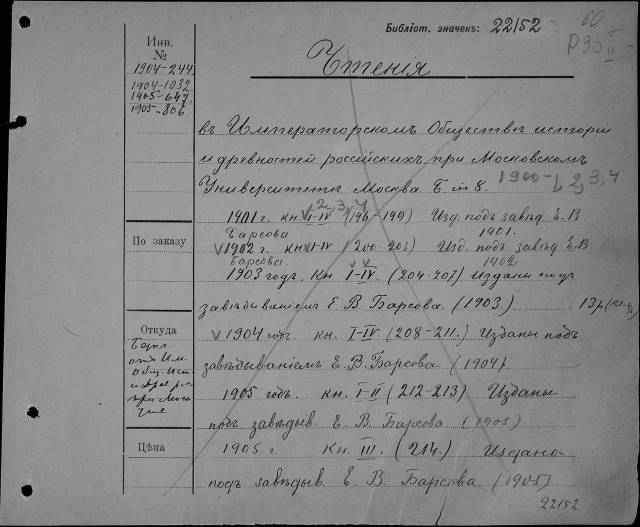 Библіот. значекъ: 22152
60
Р30
II
Инв.
№
1904-244
1904-1032
1905-647
1905-806
Чтенія
въ Императорскомъ Обществѣ исторіи
и древностей россійскихъ при Московскомъ
Университетѣ Москва Б. т 8. 1900-1, 2, 3, 4
2, 3, 4
1901 г. кн I-IV (196-199) Изд. подъ завѣд. Е. В
Барсова 1901.
По заказу
V 1902 г. кн I-IV (200-203) Изд. подъ завѣд Е. В
Барсова. 1902
1903 годъ. Кн I-IV. (204-207) Издани подъ
завѣдываніемъ Е. В. Барсова. (1903.) 13 р
Откуда
V 1904 годъ. кн. I-IV (208-211.) Изданы подъ
завѣдываніемъ Е. В. Барсова (1904).
1905 годъ. кн. I-II (212-213) Изданы
подъ завѣдыв. Е. В. Барсова (1905)
Цѣна
1905 г. Кн. III. (214.) Издана
подъ завѣдыв. Е. В. Барсова (1905)
22152